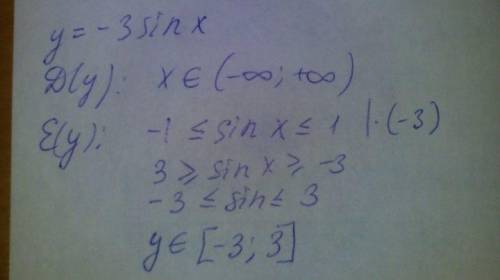 y = -3 sin x
D(y): x ∈ (-∞; +∞)
E(y): -1 ≤ sin x ≤ 1 | · (-3)
3 ⩾ sin x ⩾ -3
-3 ≤ sin ≤ 3
y ∈ [-3; 3]